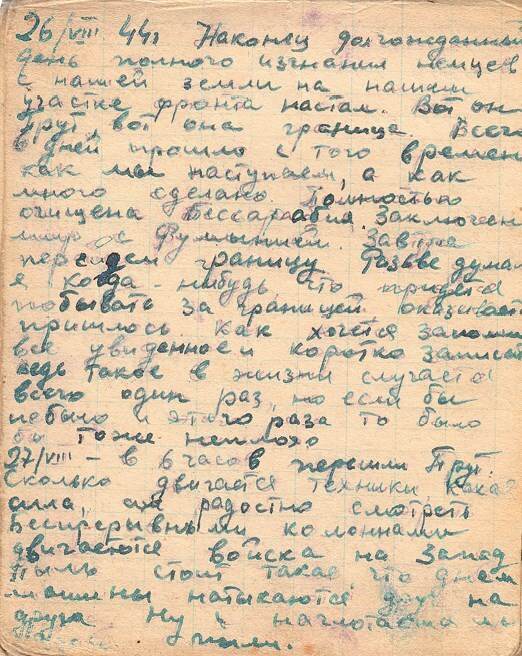 26/VIII 44г Наконец долгожданный
день полного изгнания немцев
с нашей земли на нашем
участке фронта настал. Вот он
Прут, вот она граница. Всего
6 дней прошло с того времени
как мы наступаем, а как
много сделано. Полностью
очищена Бессарабия. Заключен
мир с Румынией. Завтра
перейдем границу. Разве думал
я когда-нибудь что придется
побывать за границей, оказывает
пришлось. Как хочется запомн
все увиденное и коротко записат
ведь такое в жизни случается
всего один раз, но если бы
небыло и этого раза то было
бы тоже неплохо
27/VIII - в 6 часов перешли Прут.
Сколько двигается техники, какая
сила, аж радостно смотреть
Беспрерывными колоннами
двигаются войска на Запад
Пыль стоит такая, что днем
машины натыкаются друг на
друга. Ну и наглотались мы
пыли.